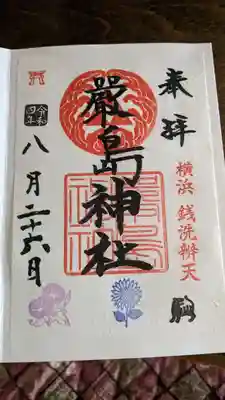 奉拝
横浜 銭洗辨天
嚴島神社
令和四年
八月二十六日